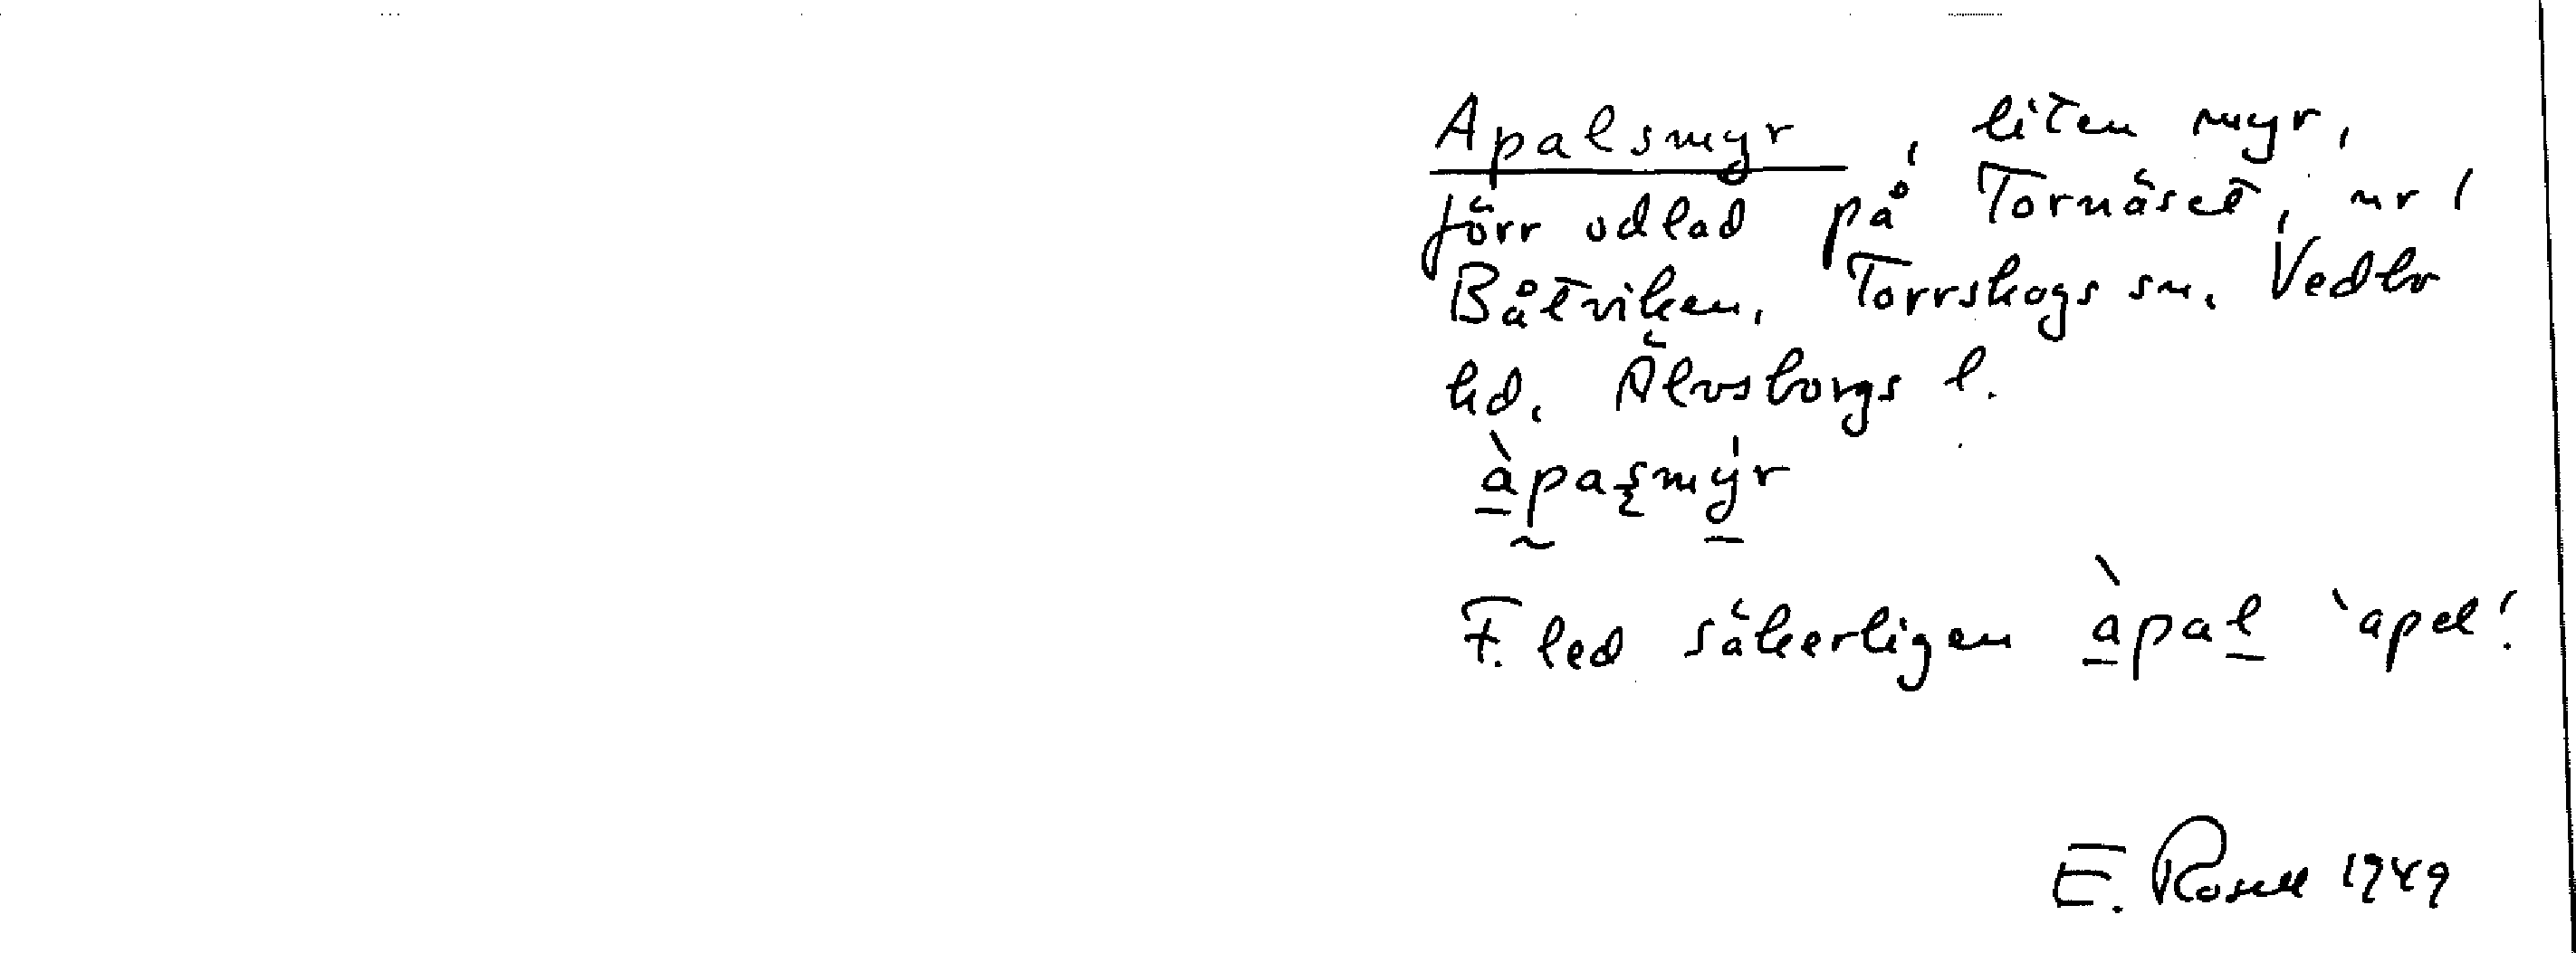 Apalsmyr, liten myr,
förr odlad på Tornäset, nr 1
Båtviken, Torrskogs sn. Vedbo
hd. Älvsborgs l.
àpaʂmýr
F. led säkerligen àpal 'apel'.
E. Rosell 1949